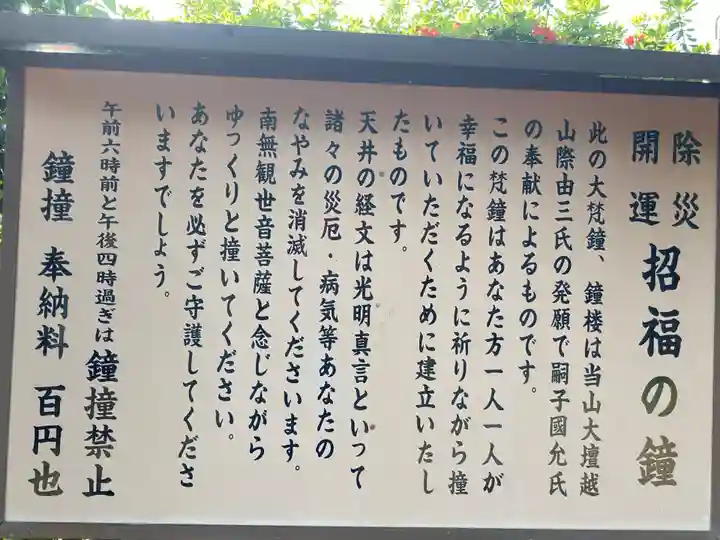 除災
開運
招福の鐘
此の大梵鐘、鐘楼は当山大壇越
山際由三氏の発願で嗣子國允氏
の奉献によるものです。
この梵鐘はあなた方一人一人が
幸福になるように祈りながら撞
いていただくために建立いたし
たものです。
天井の経文は光明真言といって
諸々の災厄・病気等あなたの
なやみを消滅してくださいます。
南無観世音菩薩と念じながら
ゆっくりと撞いてください。
あなたを必ずご守護してくださ
いますでしょう。
午前六時前と午後四時過ぎは鐘撞禁止
鐘撞 奉納料 百円也